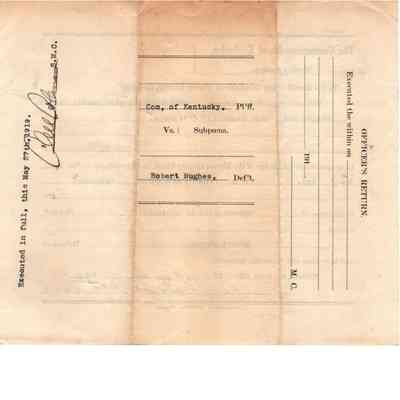 Com, of Kentucky, Pl'ff.
Vs.: Subpoena.
Robert Hughes, Def't.
OFFICER'S RETURN
Executed the within on
191
M. C.
Executed in full, this May 27th, 1919.
S.M.C.